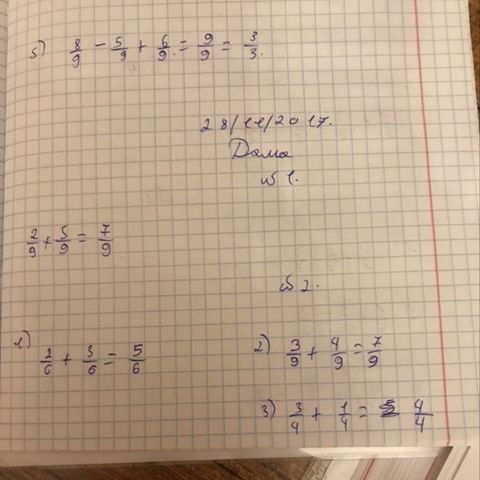 5) 8/9 - 5/9 + 6/9 = 9/9 = 3/3.
28/11/2017.
Дома
№1.
2/9 + 5/9 = 7/9
№2.
1) 2/6 + 3/6 = 5/6
2) 3/9 + 4/9 = 7/9
3) 3/4 + 1/4 = 4/4